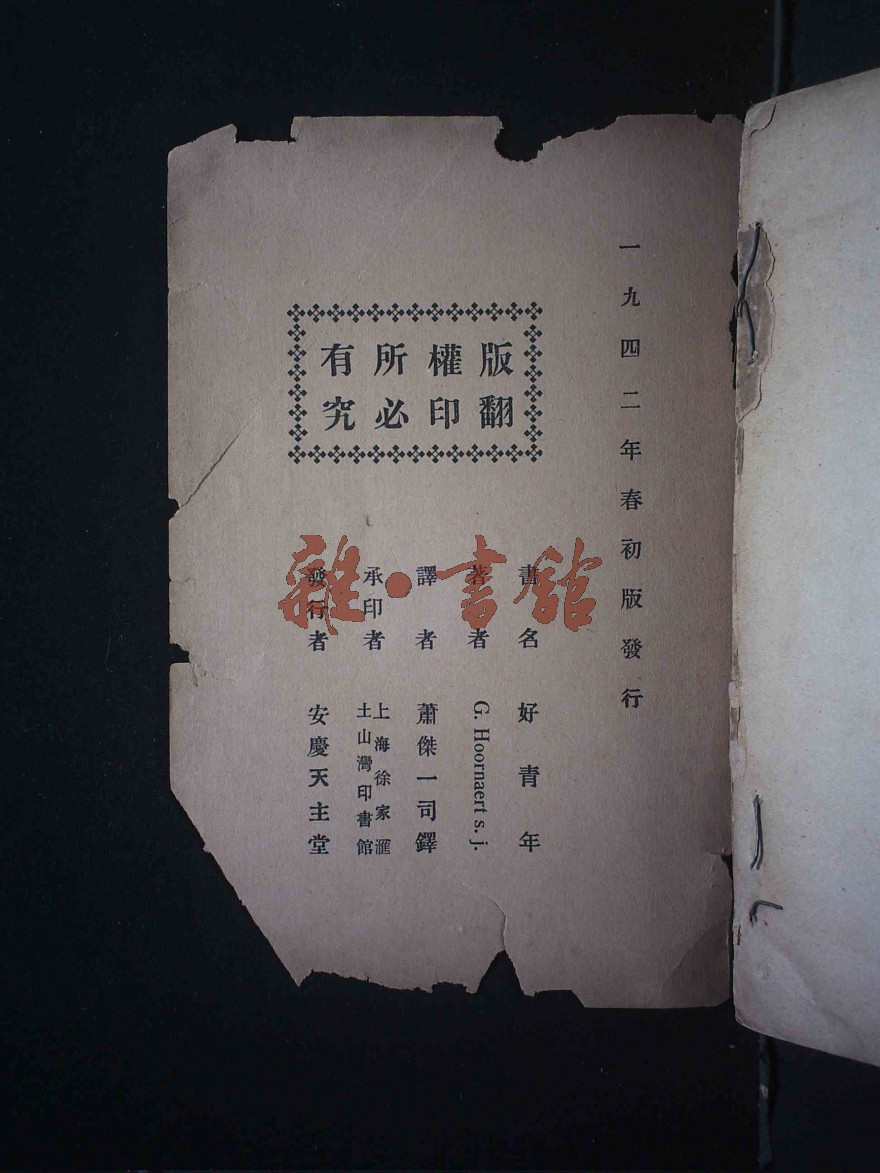 一九四二年春初版發行
版權所有
翻印必究
書名 好青年
著者 G. Hoornaert s. j.
譯者 蕭傑一司鐸
承印者 上海徐家滙
土山灣印書館
發行者 安慶天主堂
雜·書館